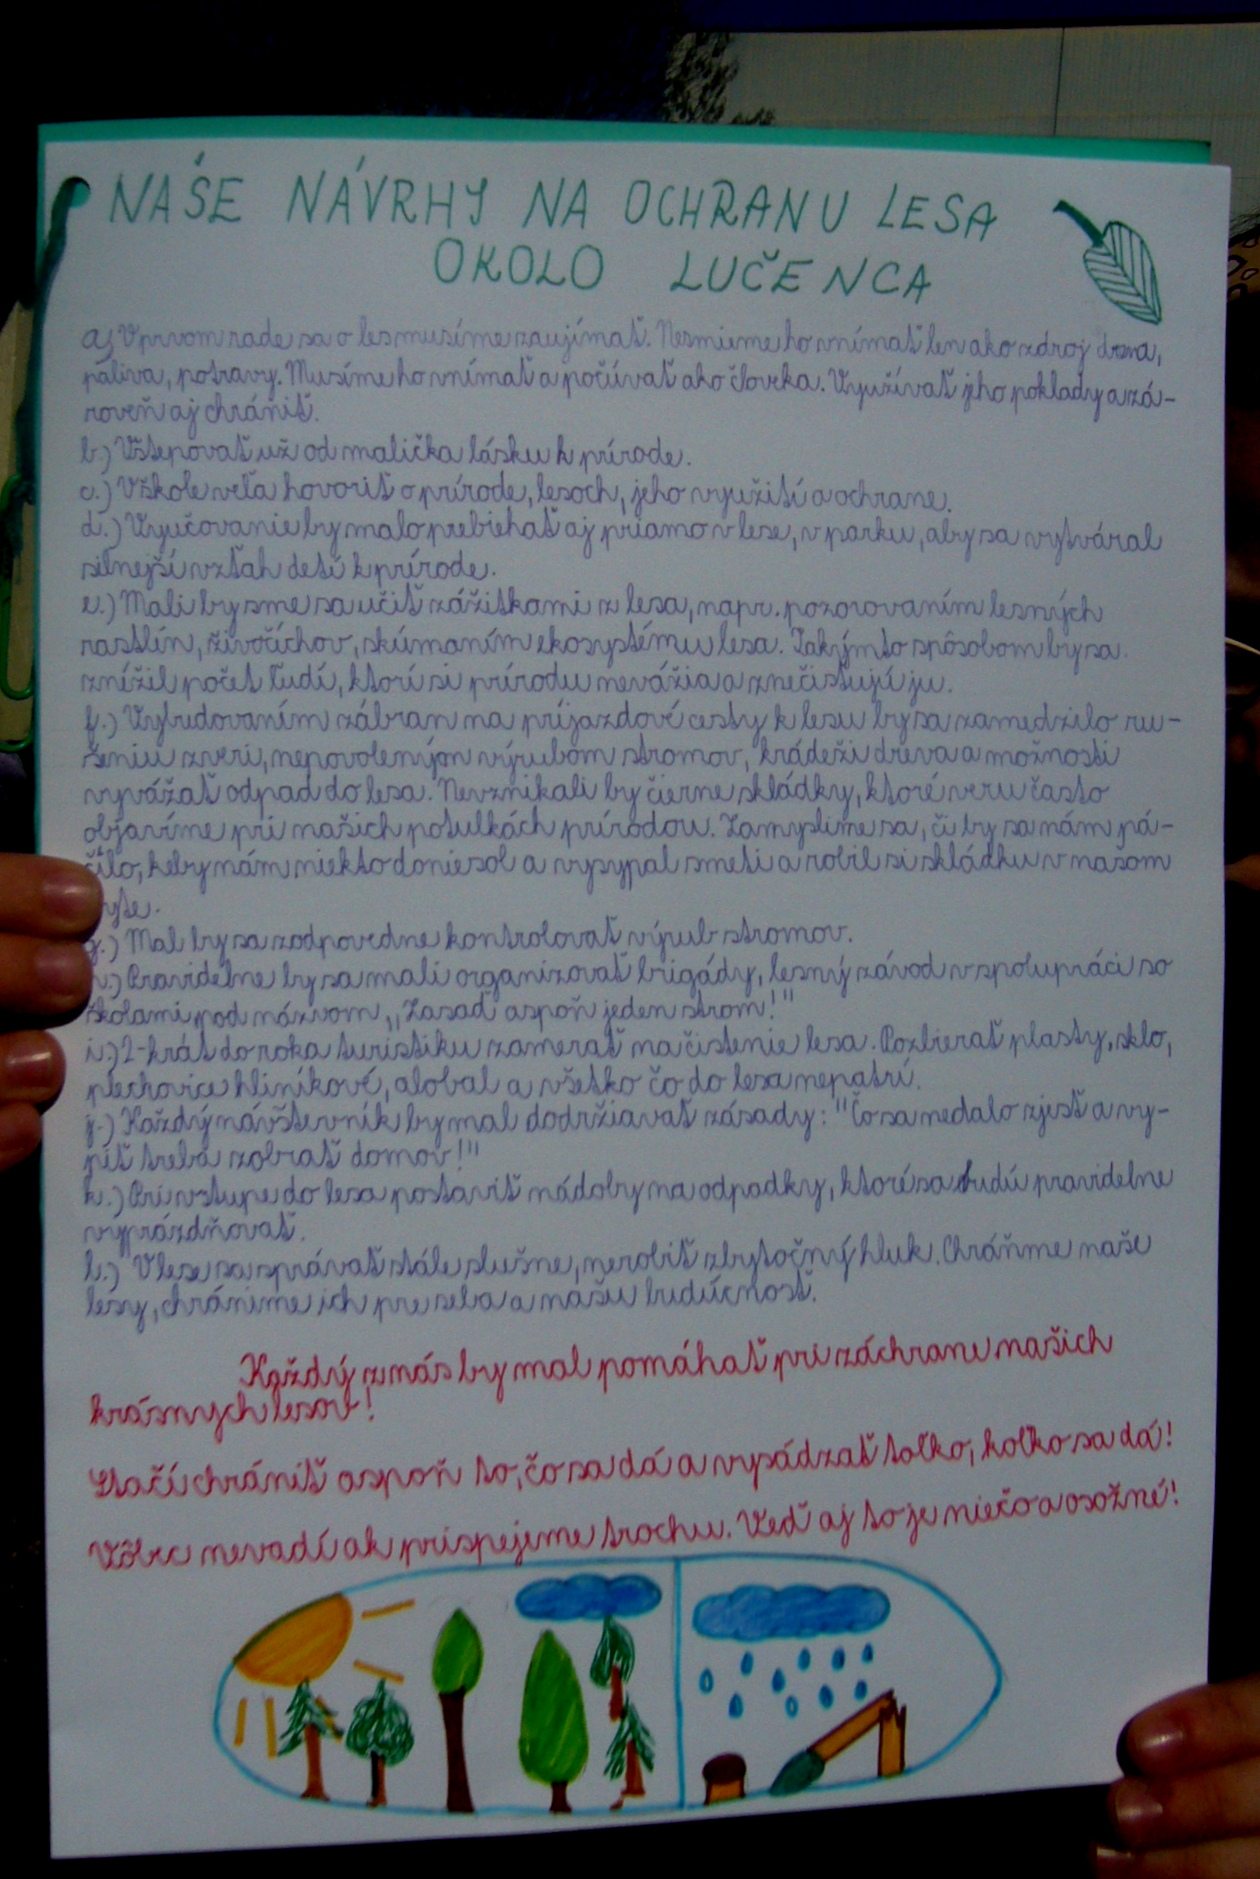 NAŠE NÁVRHY NA OCHRANU LESA
OKOLO LUČENCA
a.) V prvom rade sa o les musíme zaujímať. Nesmieme ho vnímať len ako zdroj dreva,
paliva, potravy. Musíme ho vnímať a počúvať ako človeka. Využívať jeho poklady a zá-
roveň aj chrániť.
b.) Vštepovať už od malička lásku k prírode.
c.) V škole veľa hovoriť o prírode, lesoch, jeho využití a ochrane.
d.) Vyučovanie by malo prebiehať aj priamo v lese, v parku, aby sa vytváral
silnejší vzťah detí k prírode.
e.) Mali by sme sa učiť zážitkami z lesa, napr. pozorovaním lesných
rastlín, živočíchov, skúmaním ekosystému lesa. Takýmto spôsobom by sa
znížil počet ľudí, ktorí si prírodu nevážia a znečisťujú ju.
f.) Vybudovaním zábran na príjazdové cesty k lesu by sa zamedzilo ru-
šeniu zveri, nepovoleným výrubom stromov, krádeži dreva a možnosti
vyvážať odpad do lesa. Nevznikali by čierne skládky, ktoré veru často
objavíme pri našich potulkách prírodou. Zamyslime sa, či by sa nám pá-
čilo, keby nám niekto doniesol a vysypal smeti a robil si skládku v našom
byte.
g.) Mal by sa zodpovedne kontrolovať výrub stromov.
h.) Pravidelne by sa mali organizovať brigády, lesný závod v spolupráci so
školami pod názvom „Zasaď aspoň jeden strom!"
i.) 2-krát do roka turistiku zamerať na čistenie lesa. Pozbierať plasty, sklo,
plechovice hliníkové, alobal a všetko čo do lesa nepatrí.
j.) Každý návštevník by mal dodržiavať zásady: "Čo sa nedalo zjesť a vy-
piť treba zobrať domov!"
k.) Pri vstupe do lesa postaviť nádoby na odpadky, ktoré sa budú pravidelne
vyprázdňovať.
l.) V lese sa správať stále slušne, nerobiť zbytočný hluk. Chráňme naše
lesy, chránime ich pre seba a našu budúcnosť.
Každý z nás by mal pomáhať pri záchrane našich
krásnych lesov!
Stačí chrániť aspoň to, čo sa dá a vysádzať toľko, koľko sa dá!
Vôbec nevadí ak prispejeme trochu. Veď aj to je niečo a osožné!